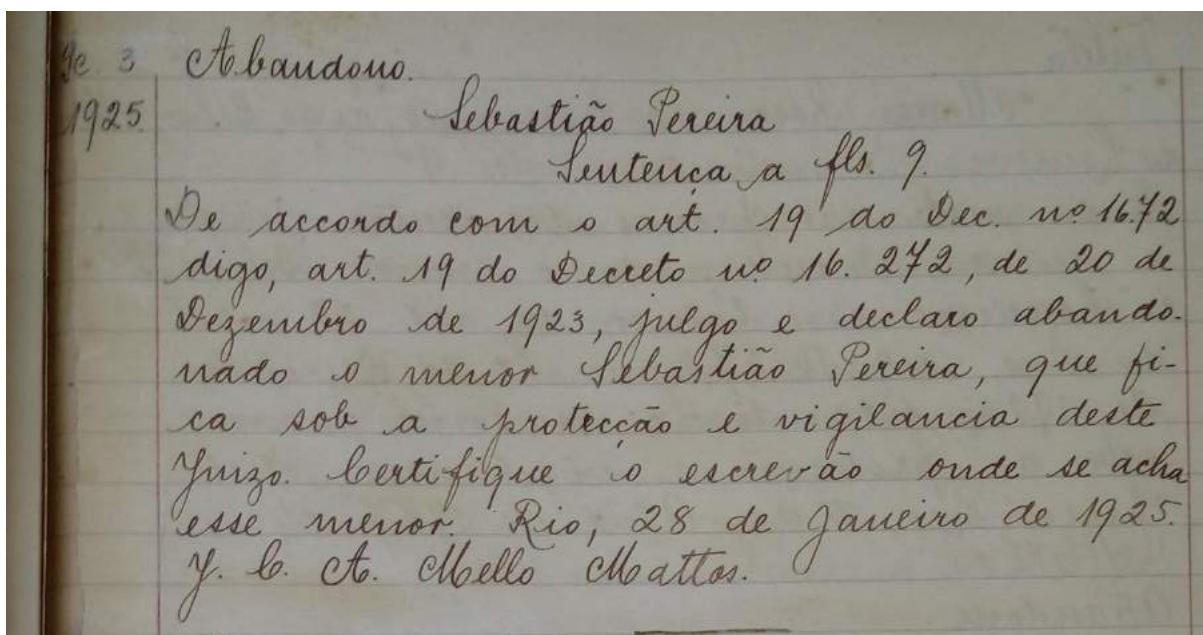 3 Abandono.
1925.
Sebastião Pereira
Sentença a fls. 9.
De accordo com o art. 19 do Dec. nº 16.72
digo, art. 19 do Decreto nº 16.272, de 20 de
Dezembro de 1923, julgo e declaro abando-
nado o menor Sebastião Pereira, que fi-
ca sob a protecção e vigilancia deste
Juizo. Certifique o escrevão onde se acha
esse menor. Rio, 28 de Janeiro de 1925.
J. C. A. Mello Mattos.